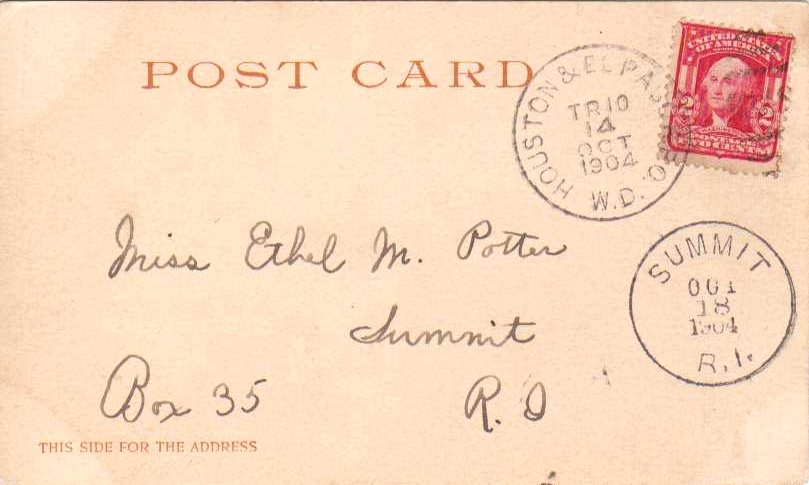 POST CARD
HOUSTON & EL PASO
TR 10
14
OCT
1904
W.D.
UNITED STATES
OF AMERICA
2 2
POSTAGE
TWO CENTS
Miss Ethel M. Potter
Summit
Box 35 R. I
SUMMIT
OCT
18
1904
R.I.
THIS SIDE FOR THE ADDRESS